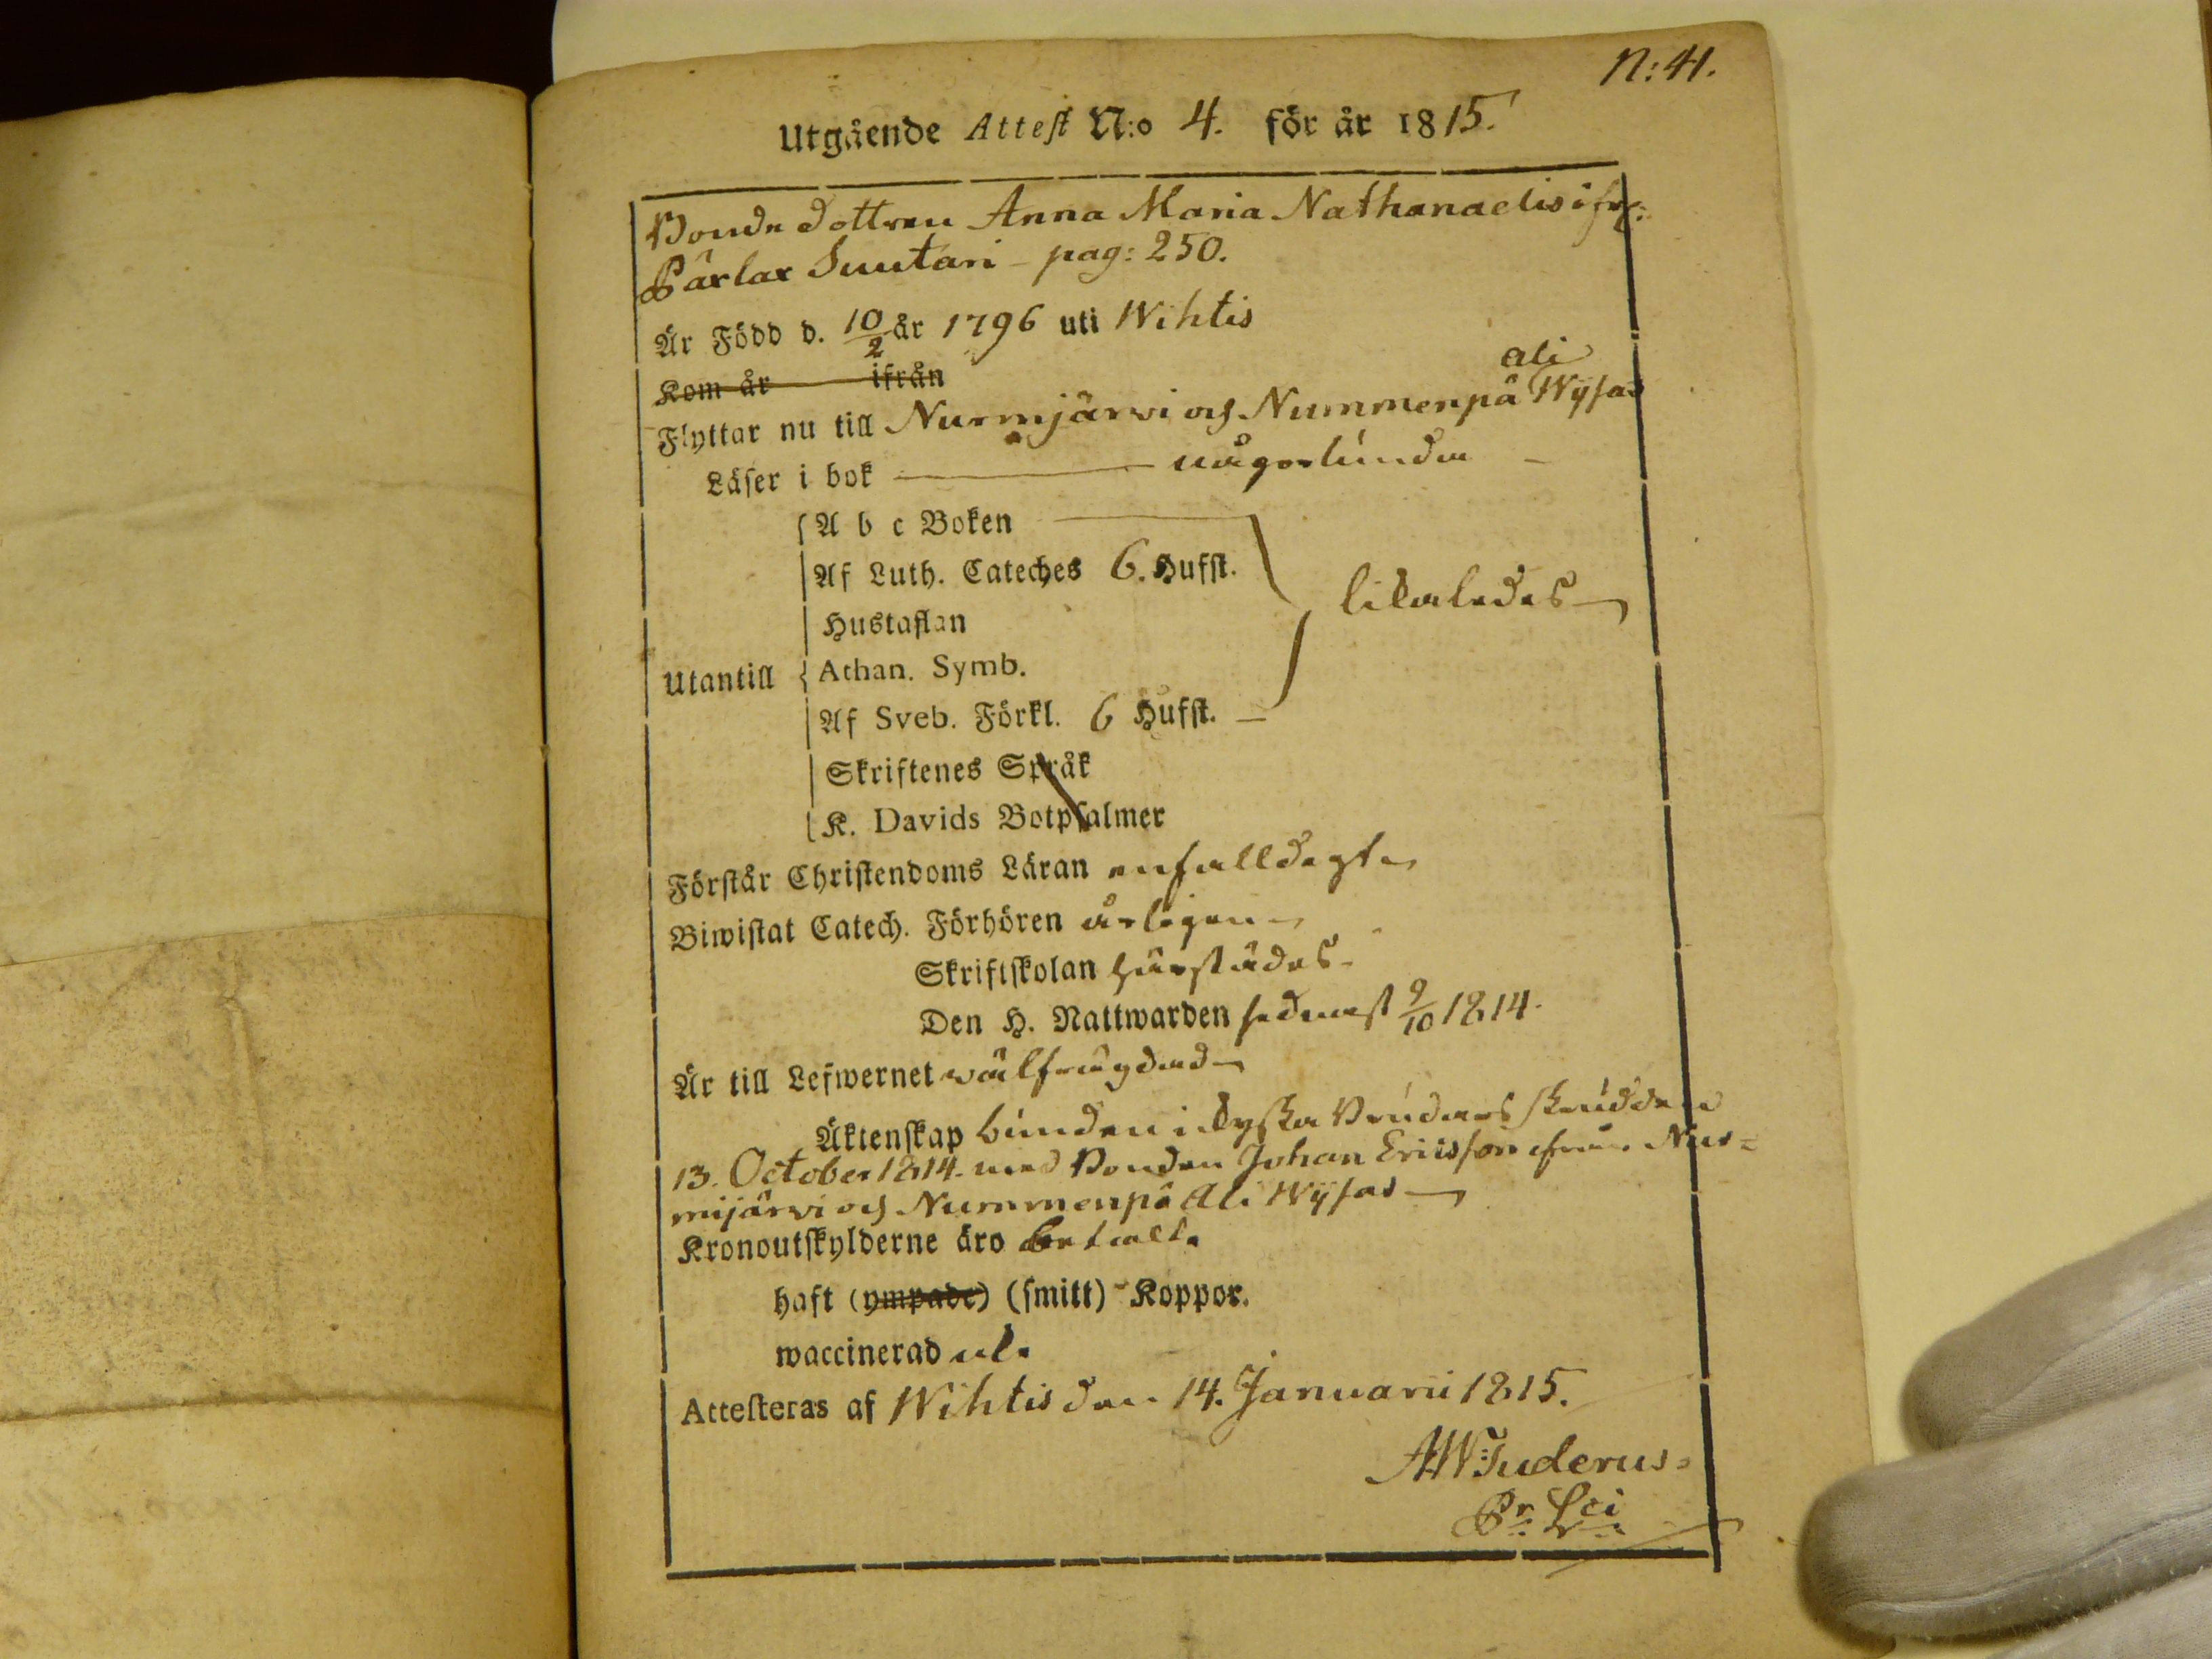 N: 41.
Utgående Attest N:o 4. för år 1815.
Bonde dottren Anna Maria Nathanaelis ifr:
Pärlax Suutari - pag: 250.
Är Född d. 10/2 år 1796 uti Wihtis
Kom år ifrån
ali
Flyttar nu till Nurmjärwi och Nummenpä Wÿsas
Läser i bok någorlunda
A b c Boken
Af Luth. Cateches 6. Hufst.
likaledes
Hustaflan
Utantill Athan. Symb.
Af Sveb. Förkl. 6 Hufst.
Skriftenes Språk
K. Davids Botpsalmer
Förstår Christendoms Läran enfalldegt
Biwistat Catech. Förhören årligen
Skriftskolan härstädes
Den H. Nattwarden sednast 9/10 1814.
Är till Lefwernet wälfrägdad
Äktenskap bunden i Brudars
13. October 1814. med Bonden Johan Ericsson ifrån Nur=
mijärwi och Nummenpä Ali Wÿsas
Kronoutskylderne äro betalt.
haft (ympade) (smitt) Koppor.
waccinerad
Attesteras af Wihtis den 14. Januarii 1815.
AW: Tuderus.
Pr: Lci